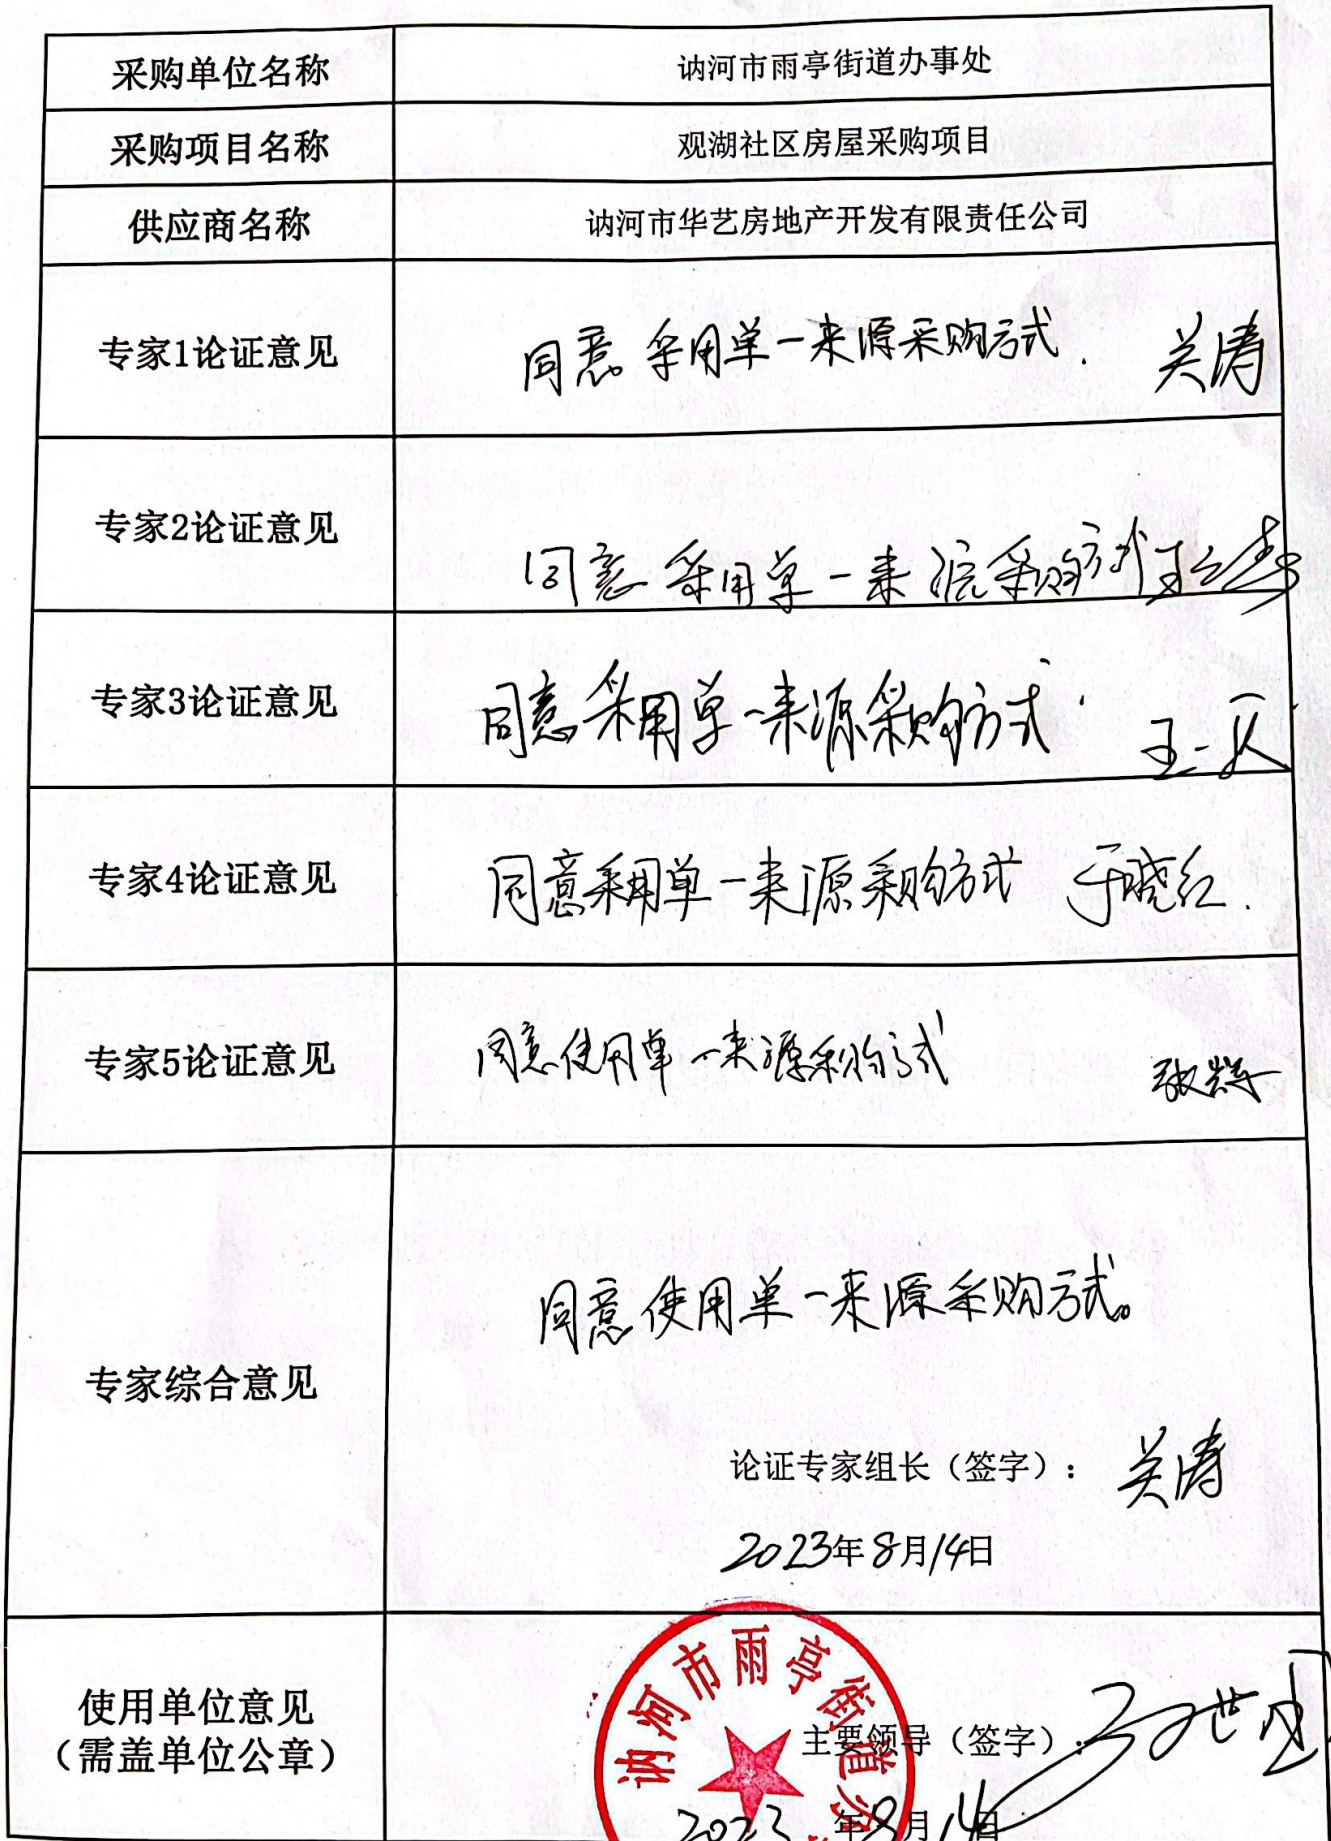 采购单位名称 讷河市雨亭街道办事处
采购项目名称 观湖社区房屋采购项目
供应商名称 讷河市华艺房地产开发有限责任公司
专家1论证意见 同意采用单一来源采购方式. 关涛
专家2论证意见 同意采用单一来源采购方式
专家3论证意见 同意采用单一来源采购方式
专家4论证意见 同意采用单一来源采购方式 于晓红.
专家5论证意见 同意使用单一来源采购方式 张辉
同意使用单一来源采购方式。
专家综合意见
论证专家组长（签字）： 关涛
2023年8月14日
使用单位意见
（需盖单位公章）
讷河市雨亭街道办
主要领导（签字）：
2023年8月14日